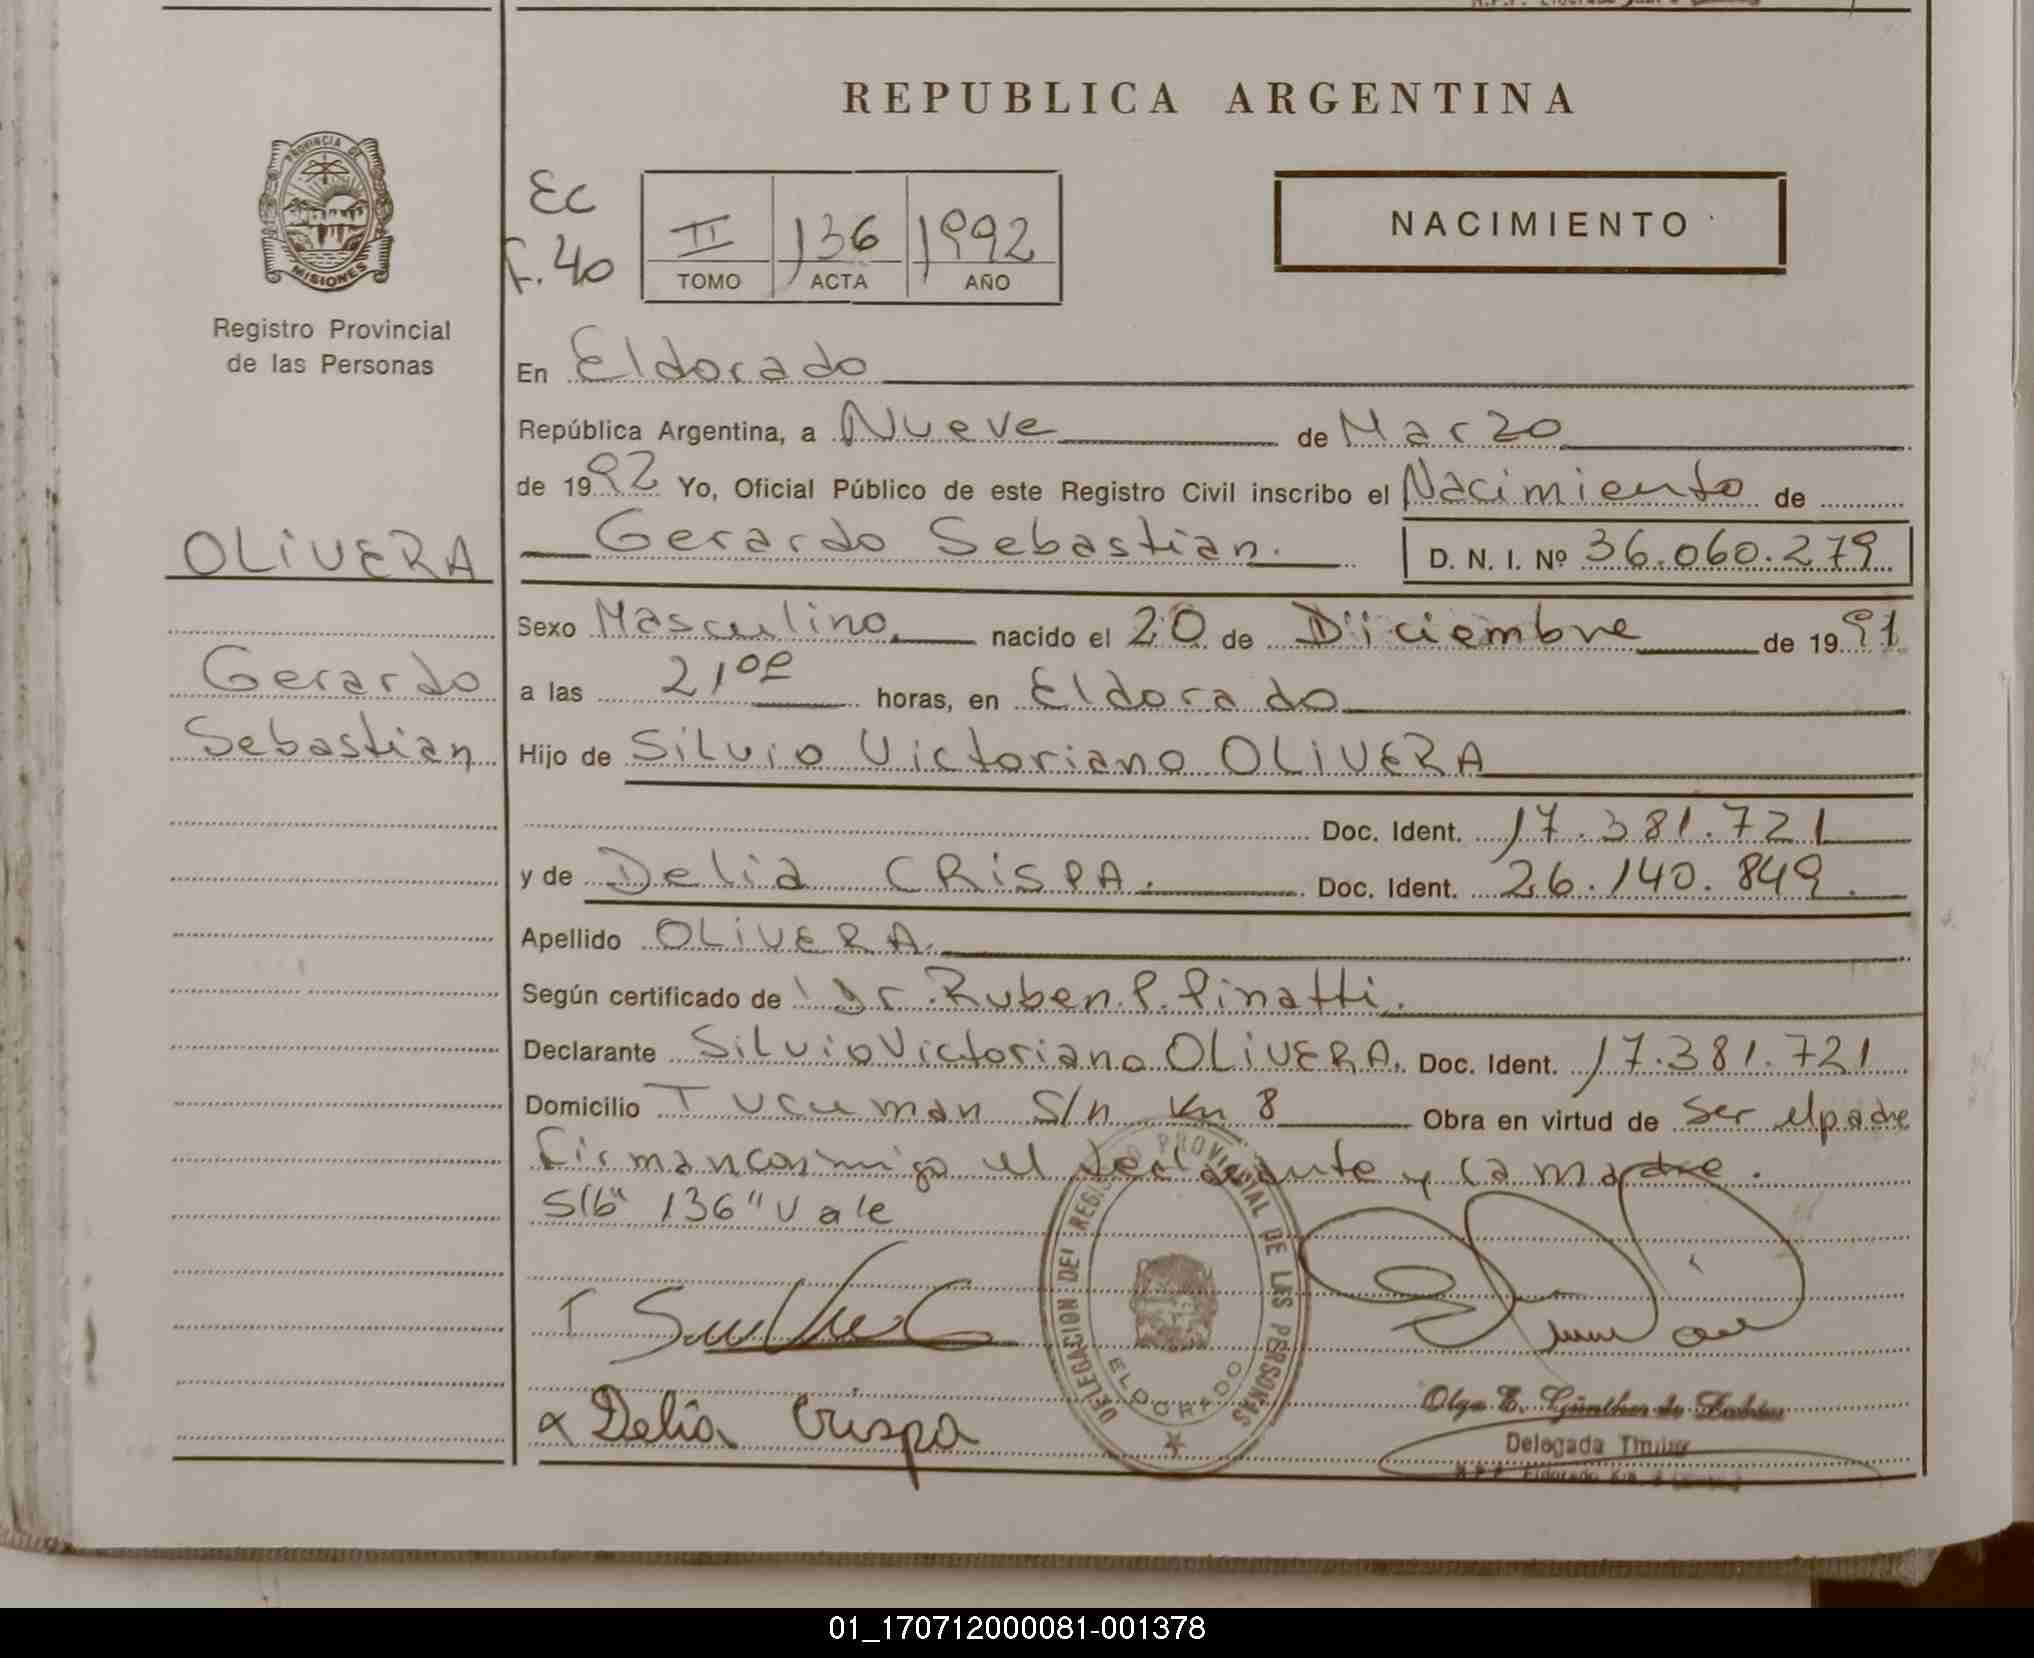 REPUBLICA ARGENTINA
PROVINCIA DE
MISIONES
Registro Provincial
de las Personas
OLIVERA
Gerardo
Sebastian
Ec
F. 40
II 136 1992
TOMO ACTA AÑO
NACIMIENTO
En Eldorado
República Argentina, a Nueve de Marzo
de 1992 Yo, Oficial Público de este Registro Civil inscribo el Nacimiento de
Gerardo Sebastian. D. N. I. Nº 36.060.279
Sexo Masculino nacido el 20 de Diiciembre de 1991
a las 21,00 horas, en Eldorado
Hijo de Silvio Victoriano OLIVERA
Doc. Ident. 17.381.721
y de Delia CRISPA. Doc. Ident. 26.140.849.
Apellido OLIVERA.
Según certificado de Dr. Ruben. P. Pinatti.
Declarante Silvio Victoriano OLIVERA. Doc. Ident. 17.381.721
Domicilio Tucuman S/n Km 8 Obra en virtud de ser el padre
Firman conmigo el declarante y la madre.
S/b "136" Vale
Delia Crispa
DELEGACION DEL REGISTRO PROVINCIAL DE LAS PERSONAS
ELDORADO
Olga E. Günther de
Delegada Titular
01_170712000081-001378